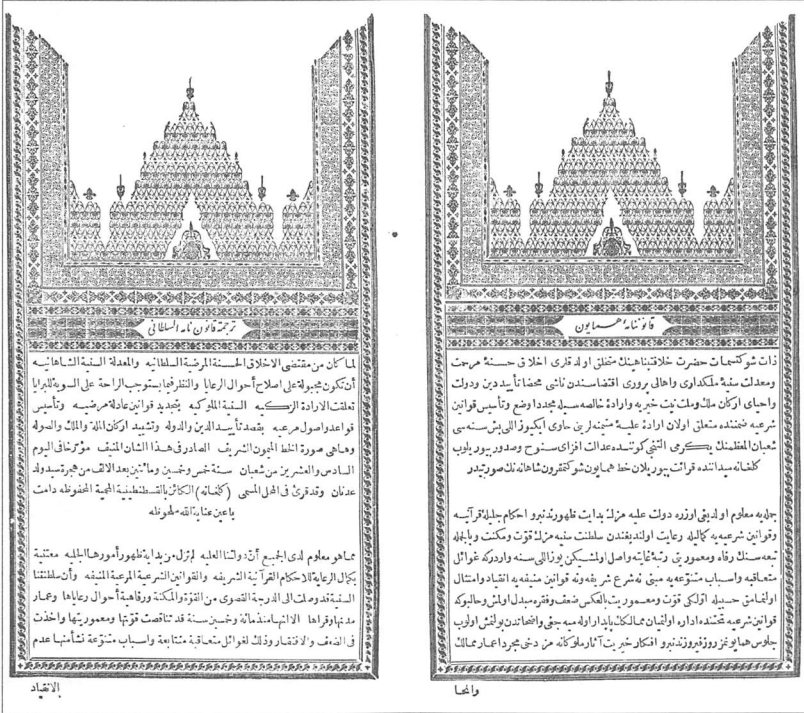 قانوننامهٔ همايون
ذات شوكتسمات حضرت خلافتپناهينك متخلق اولدقلرى اخلاق حسنهٔ مرحمت
ومعدلت سنيهٔ ملكدارى واهالى پرورى اقتضاسندن ناشى محضا تأييد دين ودولت
واحياى اركان ملك وملت نيت خيريه وارادهٔ خالصه سيله مجددا وضع وتأسيس قوانين
شرعيه ضمننده متعلق اولان ارادهٔ عليهٔ متينه لرين حاوى ايكيوز اللى بش سنه سى
شعبان المعظمنك يكرمى التنجى كوننده عدالت افزاى سنوح وصدور بيوريلوب
كلخانه ميداننده قرائت بيوريلان خط همايون شوكتمقرون شاهانه نك صورتيدر
جمله يه معلوم اولديغى اوزره دولت عليه مزك بدايت ظهورندنبرو احكام جليلهٔ قرآنيه
وقوانين شرعيه يه كماليله رعايت اولنديغندن سلطنت سنيه مزك قوت ومكنت وبالجمله
تبعه سنك رفاه ومعموريتى رتبهٔ غايته واصل اولمشيكن يوز اللى سنه واردركه غوائل
متعاقبه واسباب متنوعه يه مبنى نه شرع شريفه ونه قوانين منيفه يه انقياد وامتثال
اولنمامق حسبيله اولكى قوت ومعموريت بالعكس ضعف وفقره مبدل اولمش وحالبوكه
قوانين شرعيه تحتنده اداره اولنميان ممالكك پايدار اوله ميه جغى واضحاتدن بولنمش اولوب
جلوس همايونمز روز فيروزندنبرو افكار خيريت آثار ملوكانه مز دخى مجرد اعمار ممالك
وانحا
ترجمة قانون نامه السلطانى
لما كان من مقتضى الاخلاق الحسنة المرضية السلطانيه والمعدلة السنية الشاهانيه
أن تكون مجبولة على اصلاح أحوال الرعايا والنظر فيما يستوجب الراحة على السوية للبرايا
تعلقت الارادة الزكيه السنية الملوكيه بتجديد قوانين عادلة مرضيه وتأسيس
قواعد واصول مرعيه بقصد تأييد الدين والدوله وتشييد اركان الملة والملك والصوله
وها هى صورة الخط الهميون الشريف الصادر فى هذا الشان المنيف مؤرخا فى اليوم
السادس والعشرين من شعبان سنة خمس وخمسين ومائتين بعد الالف من هجرة سيد ولد
عدنان وقد قرئ فى المحل المسمى (كلخانه) الكائن بالقسطنطينية المحمية المحفوظه دامت
باعين عناية الله ملحوظه
مما هو معلوم لدى الجميع أن دولتنا العليه لم تزل من بداية ظهور أمورها الجليه معتنية
بكمال الرعاية للاحكام القرآنية الشريفه والقوانين الشرعية المرعية المنيفه وأن سلطنتنا
السنية قد وصلت الى الدرجة القصوى من القوة والمكنة ورفاهية أحوال رعاياها وعمار
مدنها وقراها الا انها منذ مائة وخمسين سنة قد تناقصت قوتها ومعموريتها واخذت
فى الضعف والافتقار وذلك لغوائل متعاقبة متتابعة واسباب متنوعة نشأ منها عدم
الانقياد